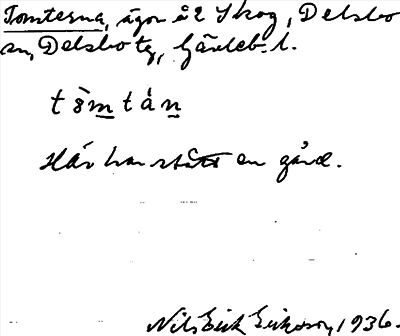 Tomterna, ägor å 2 Skog, Delsbo
sn, Delsbo tg, Gävleb. l.
tŏ̀m̲tán̲
Här har stått en gård.
Nils Erik Eriksson, 1936.